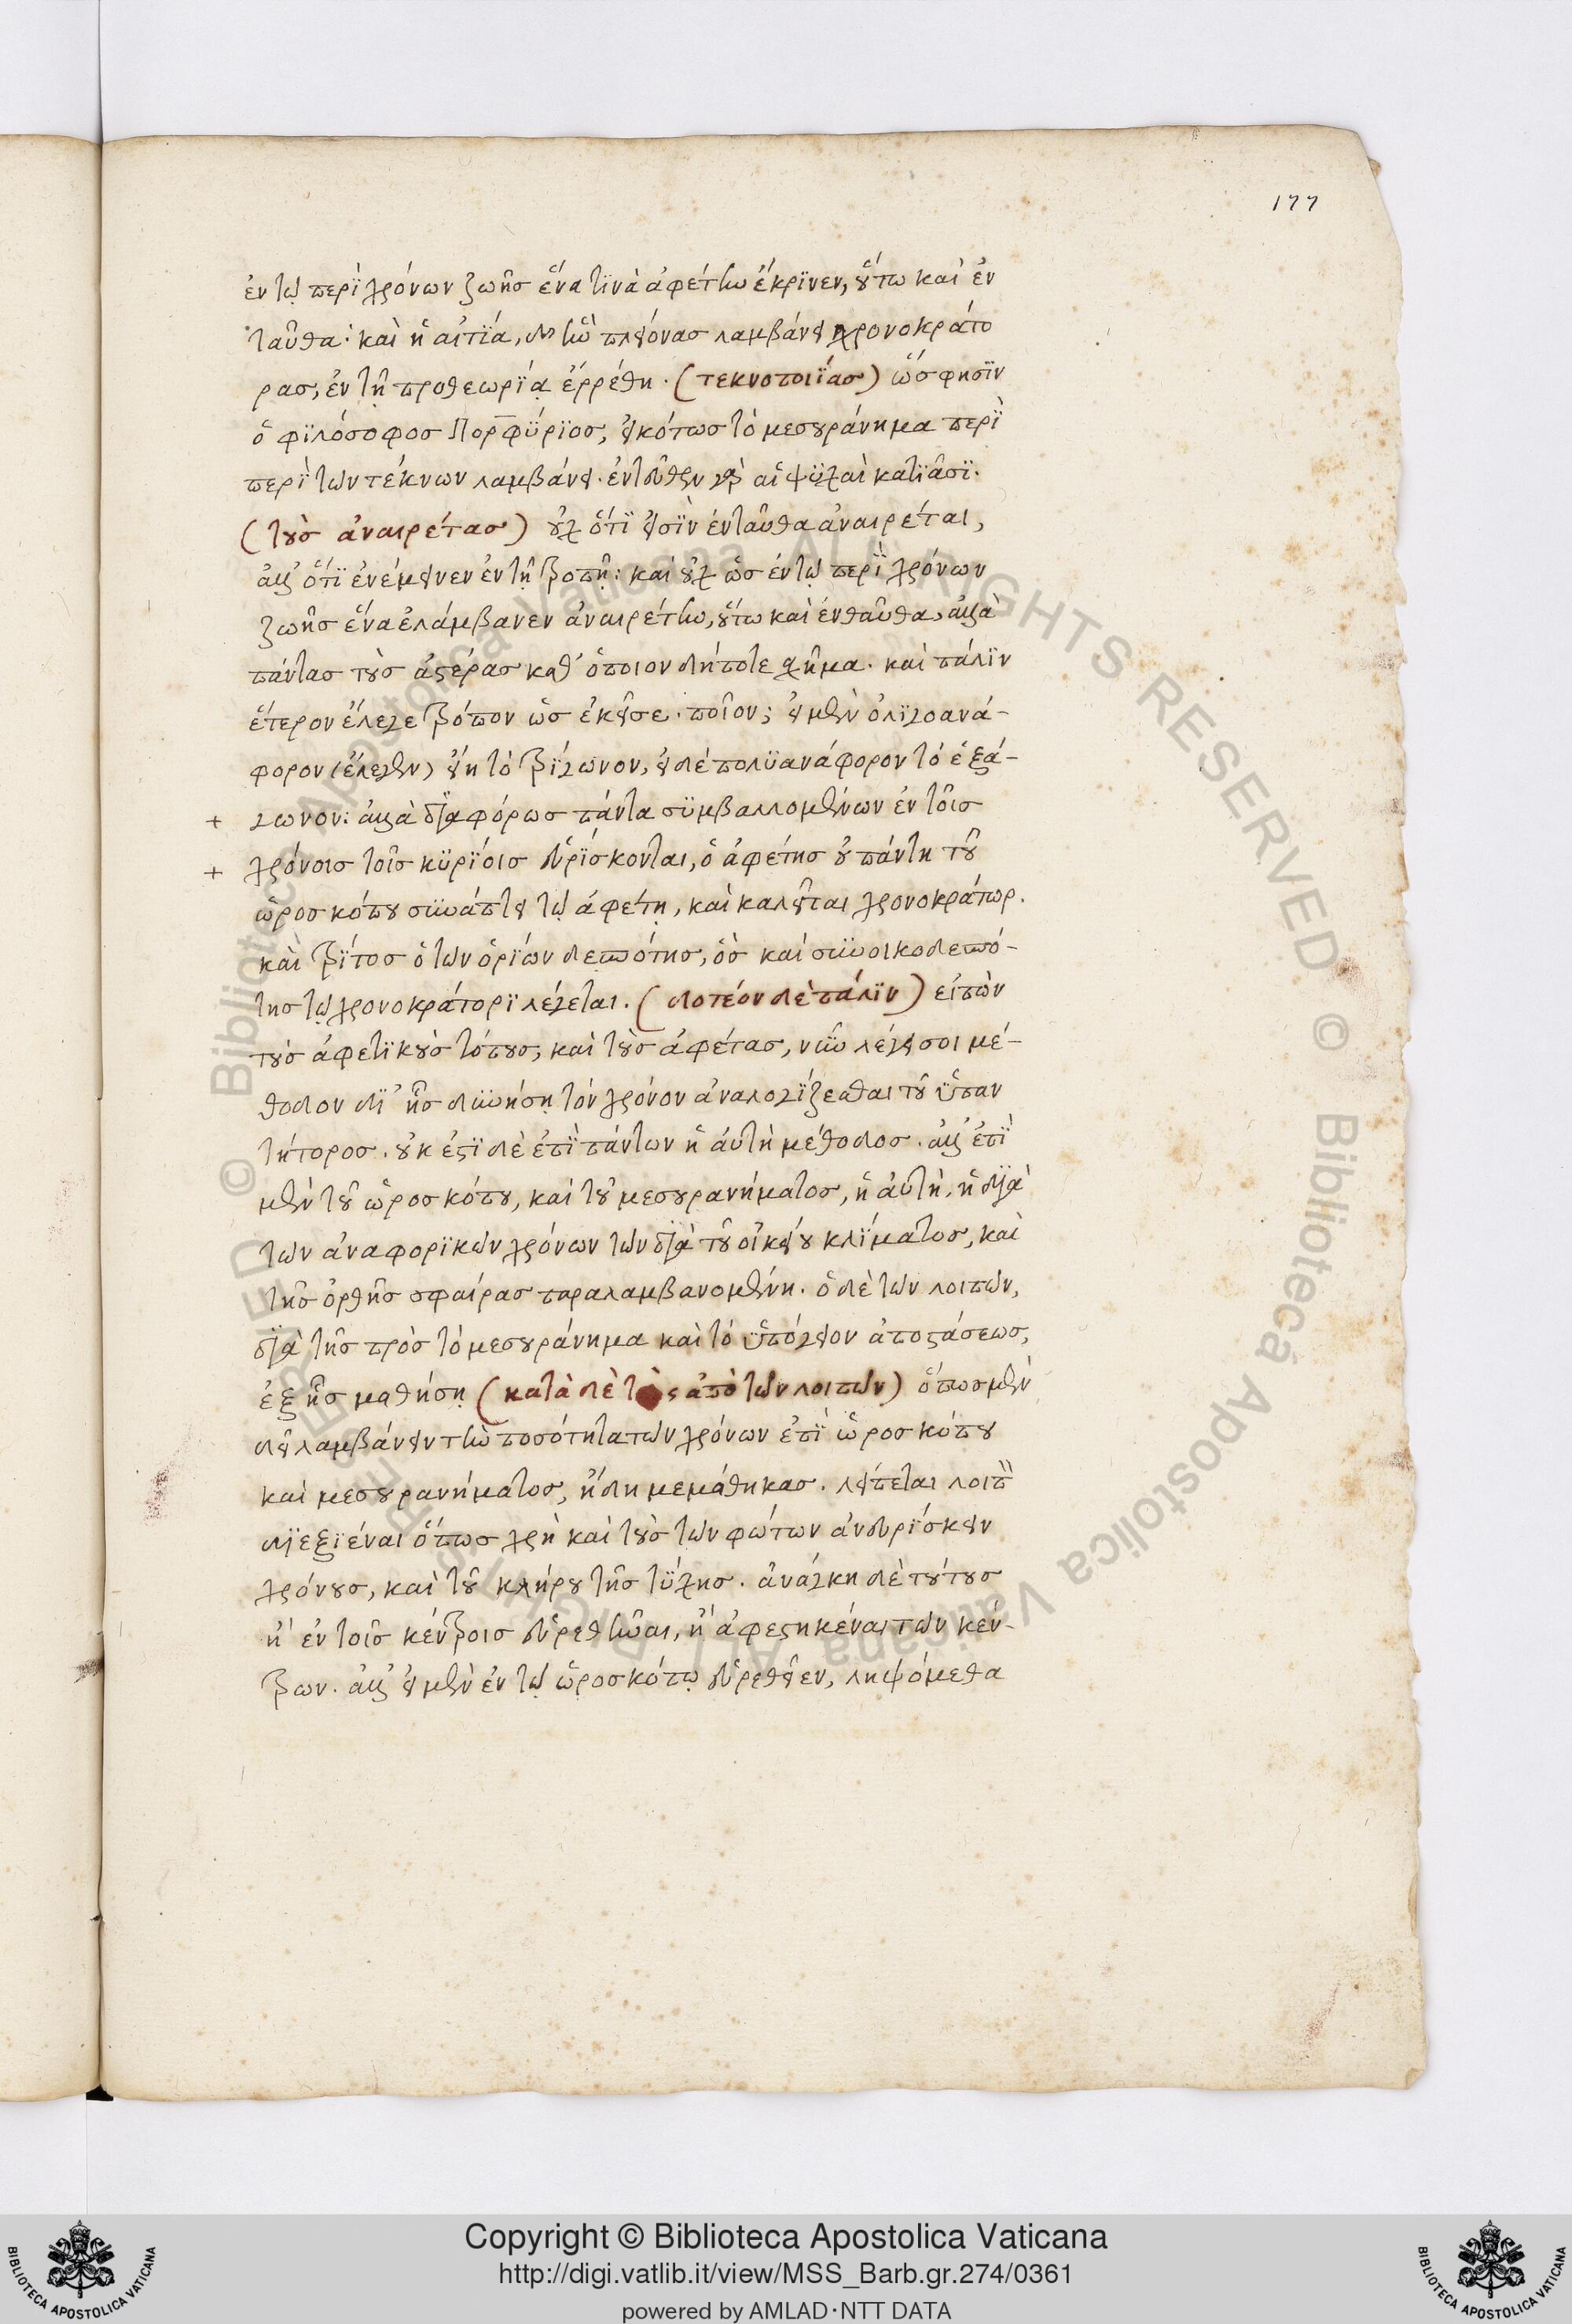 177
ἐν τῷ περὶ χρόνων ζωῆς ἕνα τινὰ ἀφέτην ἔκρινεν, οὕτω καὶ ἐν
ταῦθα· καὶ ἡ αἰτία, δι' ἣν πλείονας λαμβάνει χρονοκράτο
ρας, ἐν τῇ προθεωρίᾳ ἐρρέθη. (τεκνοποιΐας) ὥς φησὶν
ὁ φιλόσοφος Πορφύριος, εἰκότως τὸ μεσουράνημα περὶ
περὶ τῶν τέκνων λαμβάνει. ἐντεῦθεν γὰρ αἱ ψυχαὶ κατιᾶσι.
(τοὺς ἀναιρέτας) οὐχ ὅτι εἰσὶν ἐνταῦθα ἀναιρέται,
ἀλλ' ὅτι ἐνέμεινεν ἐν τῇ τροπῇ: καὶ οὐχ ὡς ἐν τῷ περὶ χρόνων
ζωῆς ἕνα ἐλάμβανεν ἀναιρέτην, οὕτω καὶ ἐνθαῦθα, ἀλλὰ
πάντας τοὺς ἀστέρας καθ' ὁποιονδήποτε σχῆμα. καὶ πάλιν
ἕτερον ἔλεγε τρόπον ὡς ἐκεῖσε. ποῖον; εἰ μὲν ὀλιγοανά-
φορον (ἔλεγεν) εἴη τὸ τρίγωνον, εἰ δὲ πολυανάφορον τὸ ἑξά-
+ γωνον: ἀλλὰ διαφόρως πάντα συμβαλλομένων ἐν τοῖς
+ χρόνοις τοῖς κυρίοις εὑρίσκονται, ὁ ἀφέτης οὐ πάντη τοῦ
ὡροσκόπου συνάπτει τῷ ἀφέτῃ, καὶ καλεῖται χρονοκράτωρ.
καὶ τρίτος ὁ τῶν ὁρίων δεσπότης, ὃς καὶ συνοικοδεσπό-
της τῷ χρονοκράτορι λέγεται. (δοτέον δὲ πάλιν) εἰπὼν
τοὺς ἀφετικοὺς τόπους, καὶ τοὺς ἀφέτας, νῦν λέγει σοι μέ-
θοδον δι' ἧς δυνήσῃ τὸν χρόνον ἀναλογίζεσθαι τοῦ ὑπαν
τήτορος. οὐκ ἔστι δὲ ἐπὶ πάντων ἡ αὐτὴ μέθοδος. ἀλλ' ἐπὶ
μὲν τοῦ ὡροσκόπου, καὶ τοῦ μεσουρανήματος, ἡ αὐτὴ, ἡ διὰ
τῶν ἀναφορικῶν χρόνων τῶν διὰ τοῦ οἰκείου κλίματος, καὶ
τῆς ὀρθῆς σφαίρας παραλαμβανομένη. ὁ δὲ τῶν λοιπῶν,
διὰ τῆς πρὸς τὸ μεσουράνημα καὶ τὸ ὑπόγειον ἀποστάσεως,
ἐξ ἧς μαθήσῃ (κατὰ δὲ τὰς ἀπὸ τῶν λοιπῶν) ὅπως μὲν
δεῖ λαμβάνειν τὴν ποσότητα τῶν χρόνων ἐπὶ ὡροσκόπου
καὶ μεσουρανήματος, ἤδη μεμάθηκας. λείπεται λοιπὸν
διεξιέναι ὅπως χρὴ καὶ τοὺς τῶν φώτων ἀνευρίσκειν
χρόνους, καὶ τοῦ κλήρου τῆς τύχης. ἀνάγκη δὲ τούτους
ἢ ἐν τοῖς κέντροις εὑρεθῆναι, ἢ ἀφεστηκέναι τῶν κέν-
τρων. ἀλλ' εἰ μὲν ἐν τῷ ὡροσκόπῳ εὑρεθεῖεν, ληψόμεθα
Copyright © Biblioteca Apostolica Vaticana
http://digi.vatlib.it/view/MSS_Barb.gr.274/0361
powered by AMLAD·NTT DATA